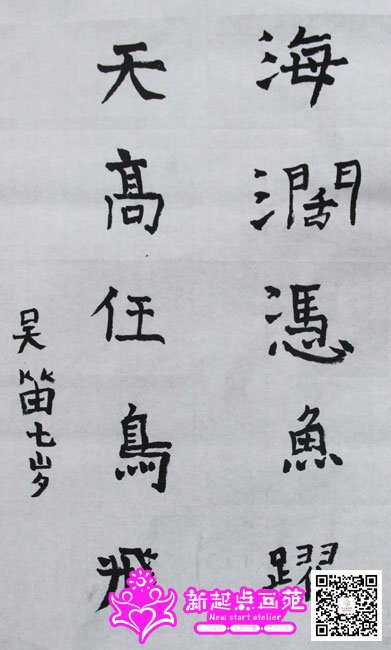 海濶憑魚躍
天高任鳥飛
吴笛七岁
新起点画苑
New start atelier